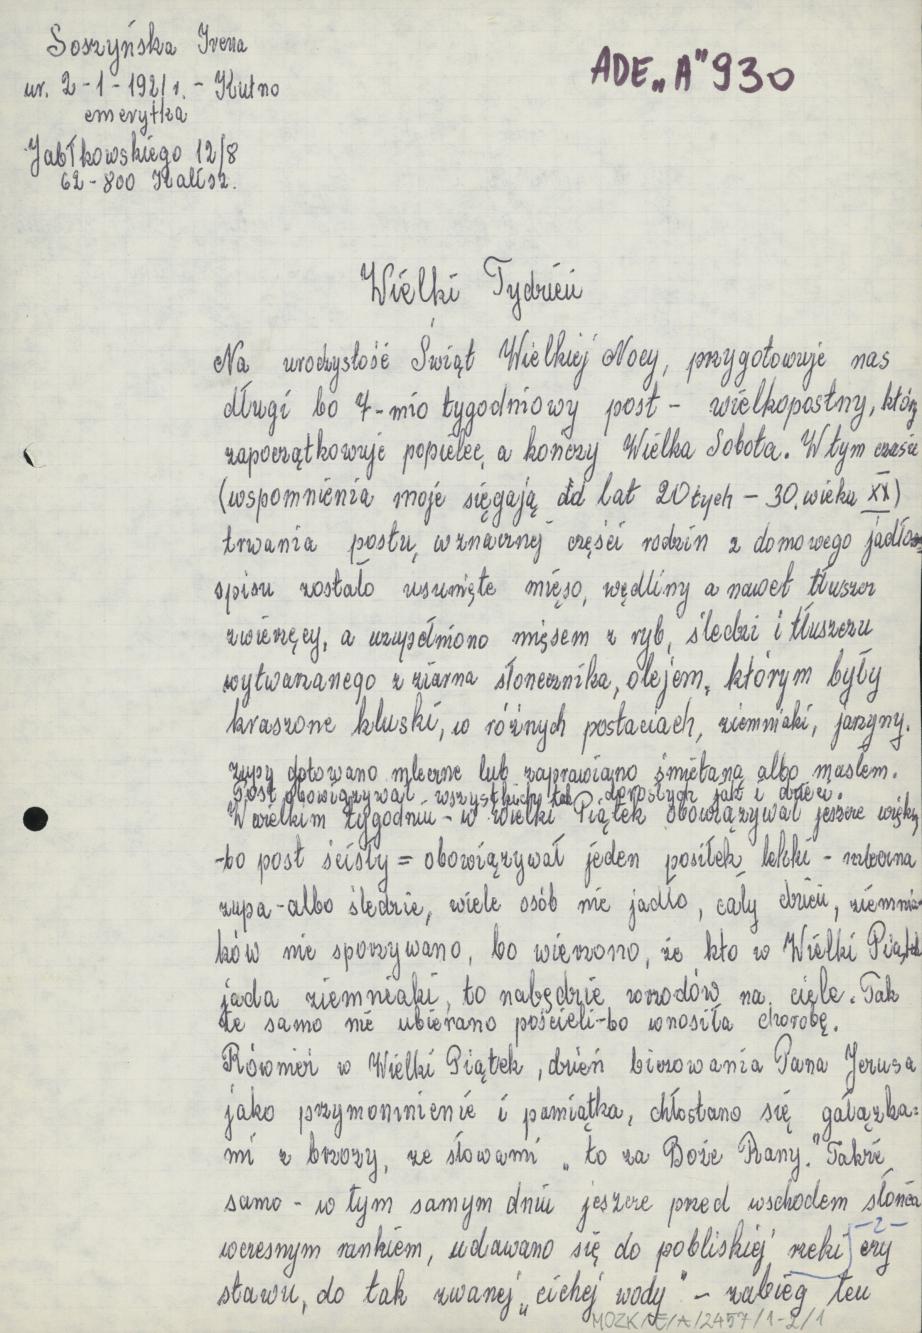 Soszyńska Irena
ur. 2-1-1921 r. - Kutno
emerytka
Jabłkowskiego 12/8
62-800 Kalisz.
ADE „A" 930
Wielki Tydzień
Na uroczystość Świąt Wielkiej Nocy, przygotowuje nas
długi bo 7-mio tygodniowy post - wielkopostny, który
zapoczątkowuje popielec, a kończy Wielka Sobota. W tym czasie
(wspomnienia moje sięgają od lat 20tych - 30. wieku XX)
trwania postu, w znacznej części rodzin z domowego jadło-
spisu zostało usunięte mięso, wędliny a nawet tłuszcz
zwierzęcy, a uzupełniono mięsem z ryb, śledzi i tłuszczu
wytwarzanego z ziarna słonecznika, olejem, którym były
kraszone kluski, w różnych postaciach, ziemniaki, jarzyny.
zupy gotowano mleczne lub zaprawiano śmietaną albo masłem.
Post obowiązywał wszystkich tak dorosłych jak i dzieci.
W wielkim tygodniu - w Wielki Piątek obowiązywał jeszcze większy
-bo post ścisły = obowiązywał jeden posiłek lekki - mleczna
zupa - albo śledzie, wiele osób nie jadło, cały dzień, ziemnia-
ków nie spożywano, bo wierzono, że kto w Wielki Piątek
jada ziemniaki, to nabędzie wrzodów na ciele. Tak
że samo nie ubierano pościeli-bo wnosiła chorobę.
Również w Wielki Piątek, dzień biczowania Pana Jezusa
jako przypomnienie i pamiątka, chłostano się gałązka=
mi z brzozy, ze słowami „to za Boże Rany." Takźe
samo - w tym samym dniu jeszcze przed wschodem słońca
-2-
wczesnym rankiem, udawano się do pobliskiej rzeki czy
stawu, do tak zwanej „cichej wody" - zabieg ten
MOZK/E/A/2457/1-2/1